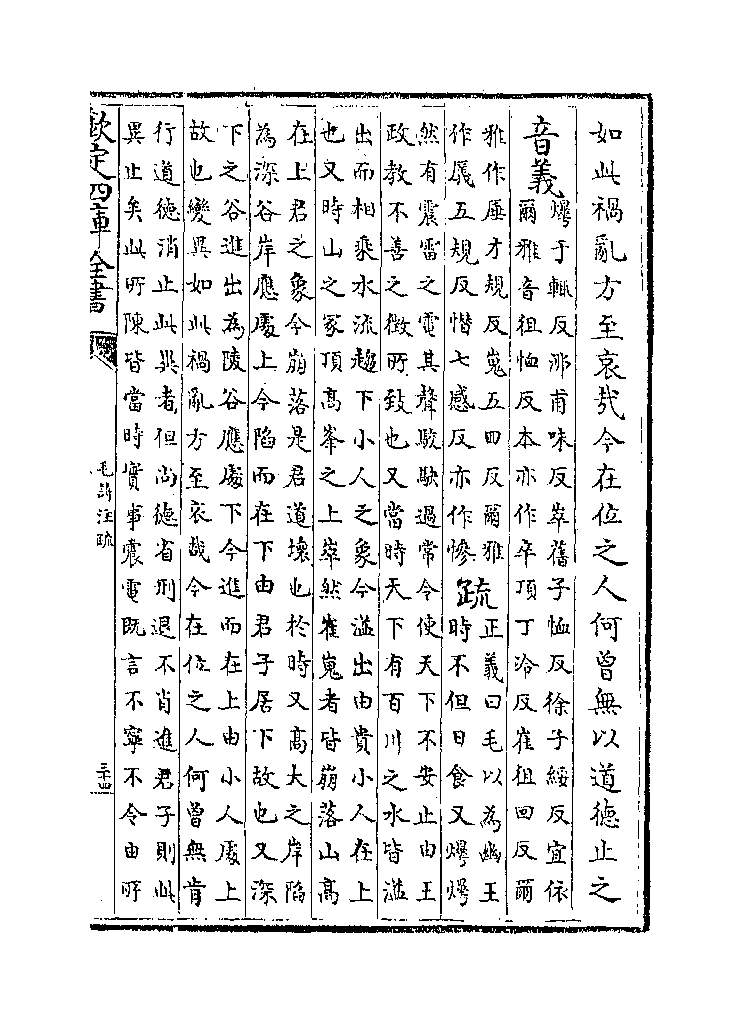 如此禍亂方至哀哉今在位之人何曾無以道德止之
音義
爗于輒反沸甫味反崒舊子恤反徐子綏反宜依
爾雅音徂恤反本亦作卒頂丁泠反崔徂回反爾
雅作厜才規反嵬五回反爾雅
作㕒五規反憯七感反亦作慘
疏
正義曰毛以為幽王
時不但日食又爗爗
然有震雷之電其聲駿駃過常令使天下不安止由王
政教不善之徵所致也又當時天下有百川之水皆溢
出而相乘水流趨下小人之象今溢出由貴小人在上
也又時山之冢頂高峯之上崒然崔嵬者皆崩落山高
在上君之象今崩落是君道壞也於時又高大之岸陷
為深谷岸應處上今陷而在下由君子居下故也又深
下之谷進出為陵谷應處下今進而在上由小人處上
故也變異如此禍亂方至哀哉今在位之人何曾無肯
行道德消止此異者但尚德省刑退不肖進君子則此
異止矣此所陳皆當時實事震電既言不寧不令由所
欽定四庫全書
毛詩注疏
三十四